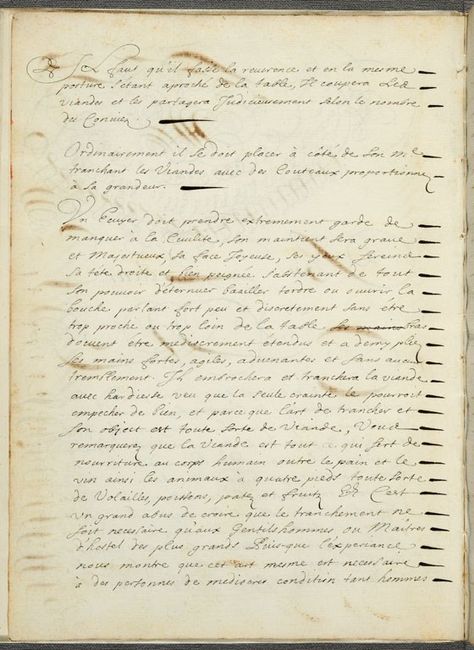 Il faut qu'il fasse la reverence et en la mesme
posture s'etant aproché de la table, Il coupera Les
viandes et les partagera Judicieusement selon le nombre
des Conviez.
Ordinairement il se doit placer à côté de son Me
tranchant les Viandes avec des Couteaux proportionnez
à sa grandeur.
Un Ecuyer doit prendre extremement garde de
manquer à la Civilité, son maintien sera grave
et Majestueux, sa face Joyeuse, ses yeux sereins
sa tete droite et bien peignée s'abstenant de tout
son pouvoir d'eternuer baailler tordre ou ouvrir la
bouche parlant fort peu et discretement sans etre
trop proche ou trop loin de la table, ses mains bras
doivent etre mediocrement étendus et a demy pliez
ses mains fortes, agiles, advenantes et sans aucun
tremblement. Il embrochera et tranchera la viande
avec hardiesse veu que la seule crainte le pourroit
empecher de bien, et parce que l'art de trancher et
son object est toute sorte de Viande, Vous
remarquerez que la Viande est tout ce qui sert de
nourriture au corps humain outre le pain et le
vin ainsi les animaux à quatre pieds toute sorte
de Volailles, poissons, et fruitz C'est
un grand abus de croire que le tranchement ne
soit necessaire qu'aux Gentilshommes ou Maitres
d'hostel des plus grands Puis que l'experiance
nous montre que cet art mesme est necessaire
à des personnes de mediocres condition tant hommes